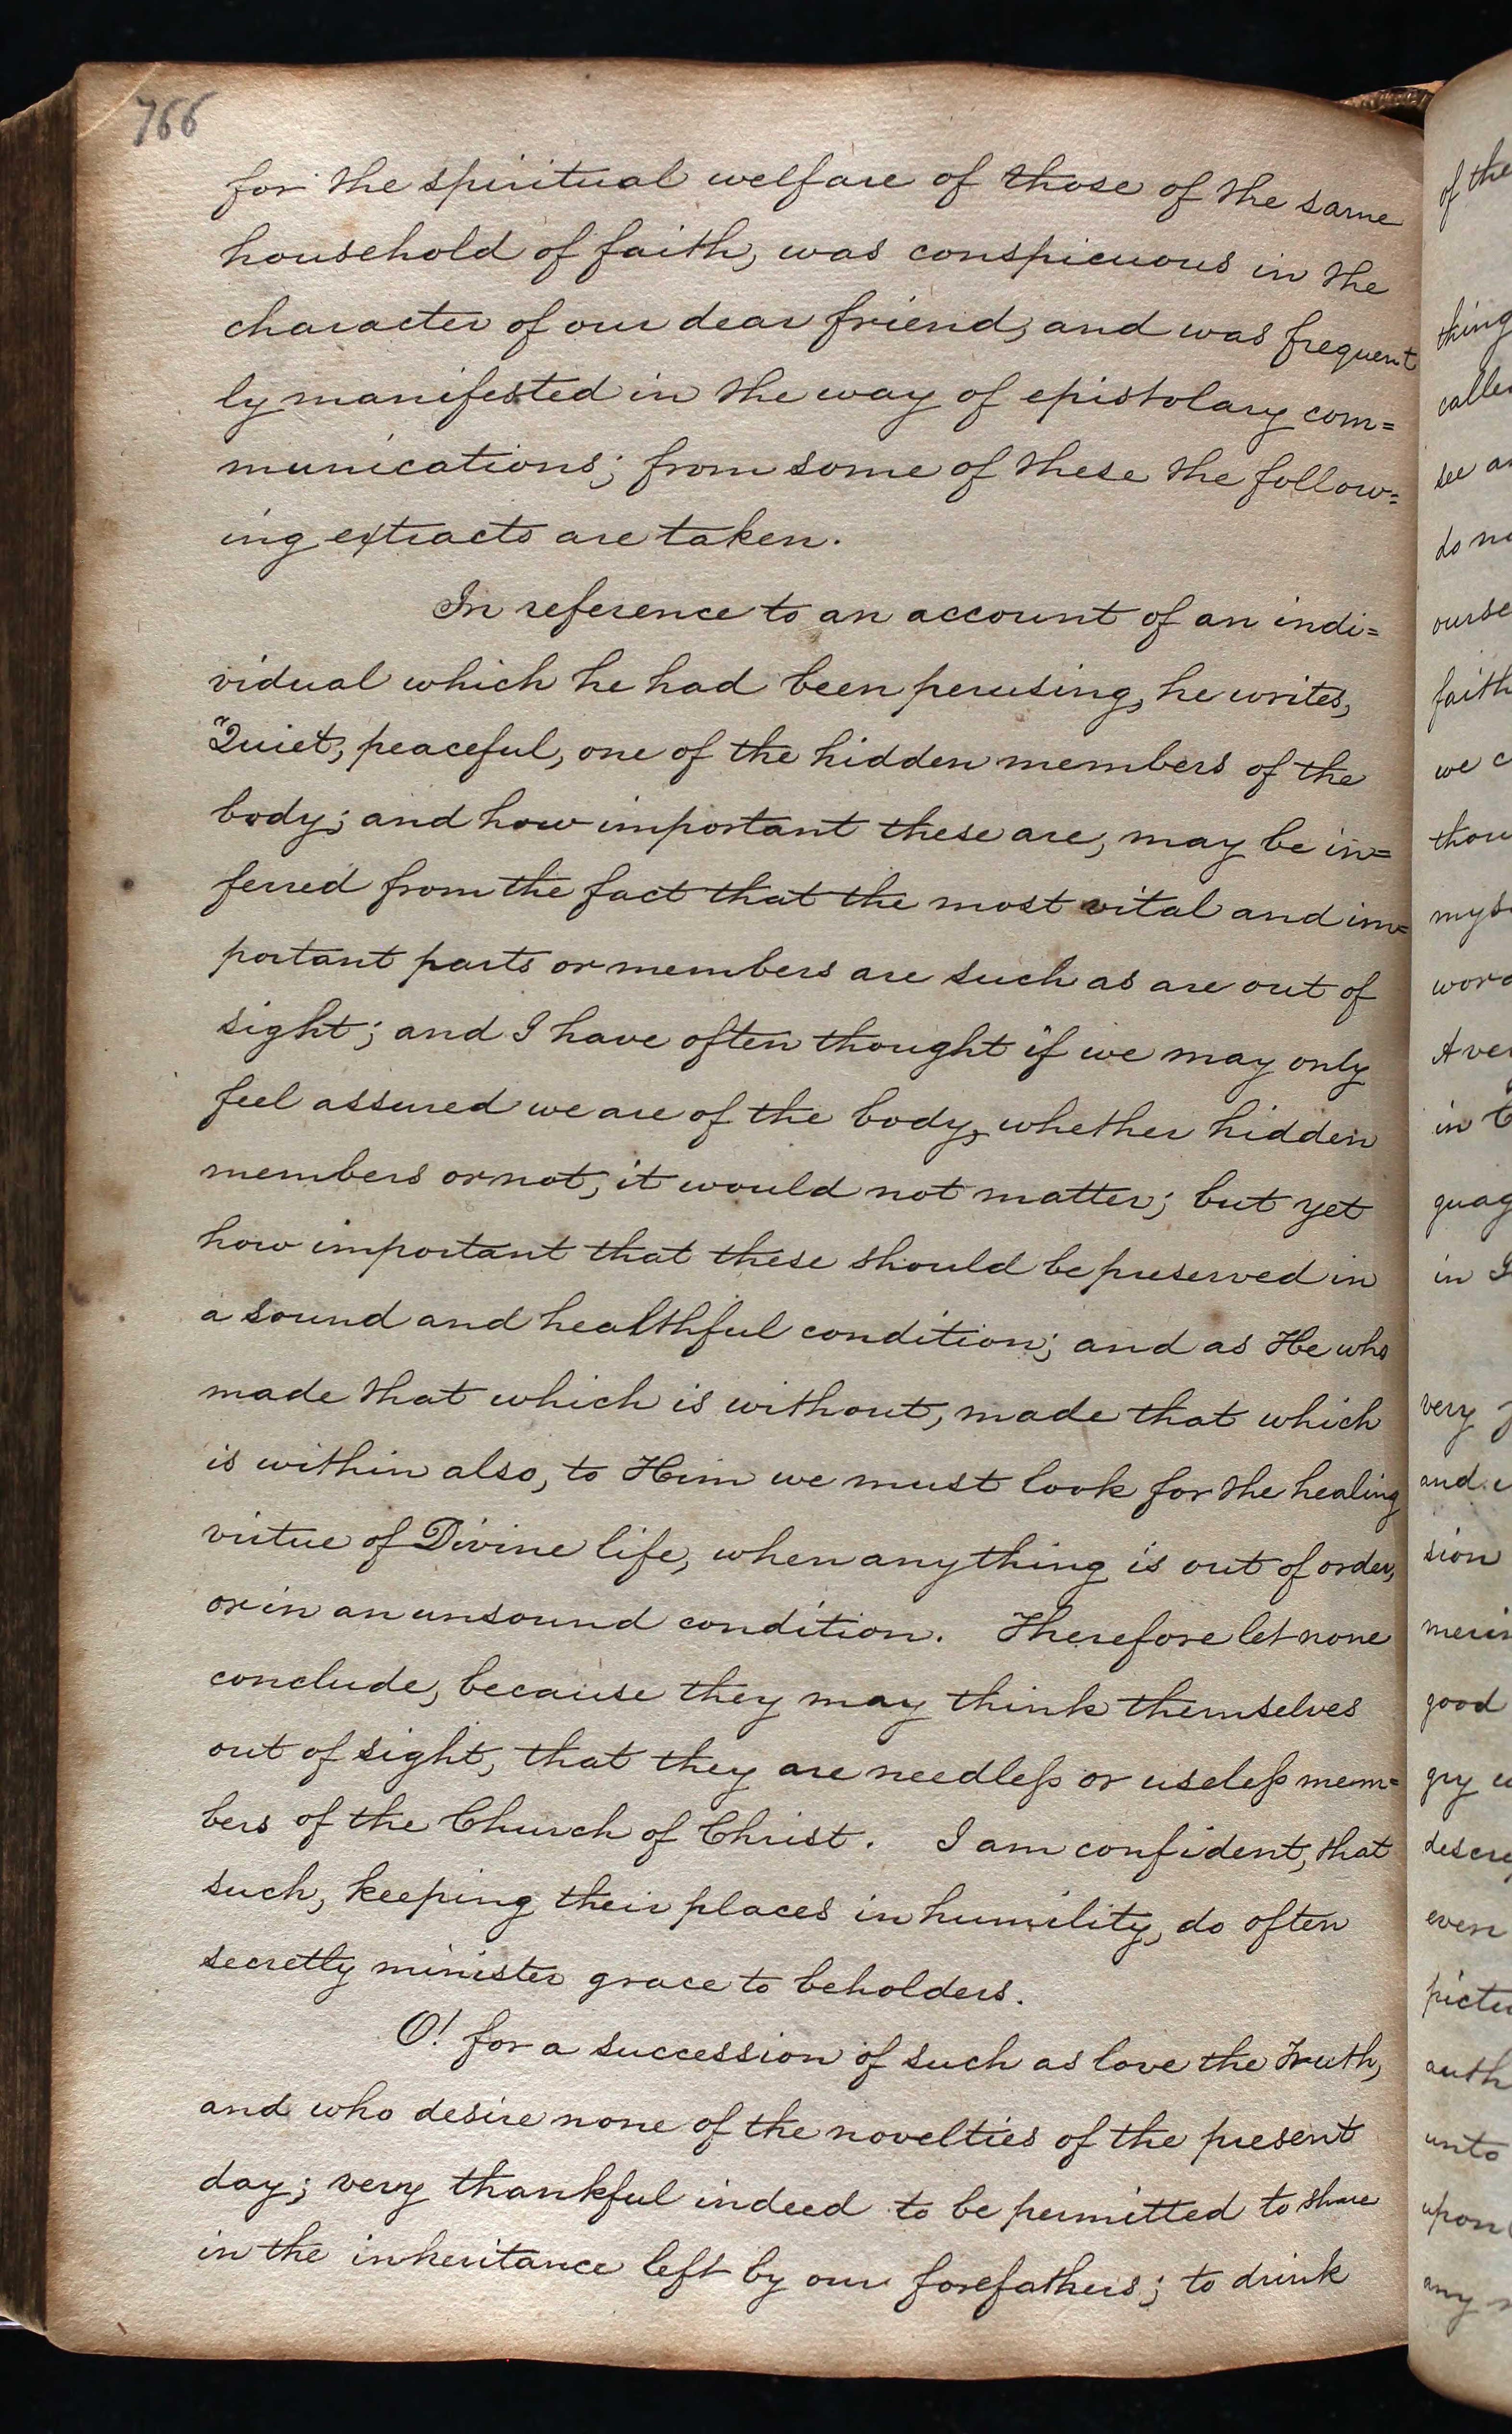 766
for the spiritual welfare of those of the same
household of faith, was conspicuous in the
character of our dear friend, and was frequent
ly manifested in the way of epistolary com=
munications; from some of these the follow=
ing extracts are taken.
In reference to an account of an indi=
vidual which he had been perusing, he writes,
"Quiet, peaceful, one of the hidden members of the
body; and how important these are, may be in=
ferred from the fact that the most vital and im=
portant parts or members are such as are out of
sight; and I have often thought if we may only
feel assured we are of the body, whether hidden
members or not, it would not matter; but yet
how important that these should be preserved in
a sound and healthful condition; and as He who
made that which is without, made that which
is within also, to Him we must look for the healing
virtue of Divine life, when anything is out of order,
or in an unsound condition. Therefore let none
conclude, because they may think themselves
out of sight, that they are needleſs or uſeleſs mem=
bers of the Church of Christ. I am confident, that
such, keeping their places in humility, do often
secretly minister grace to beholders.
O! for a succession of such as love the Truth,
and who desire none of the novelties of the present
day; very thankful indeed to be permitted to share
in the inheritance left by our forefathers; to drink
of the
thing
see
faith
we
in
in
very
and
sion
good
even
unto
upon
any